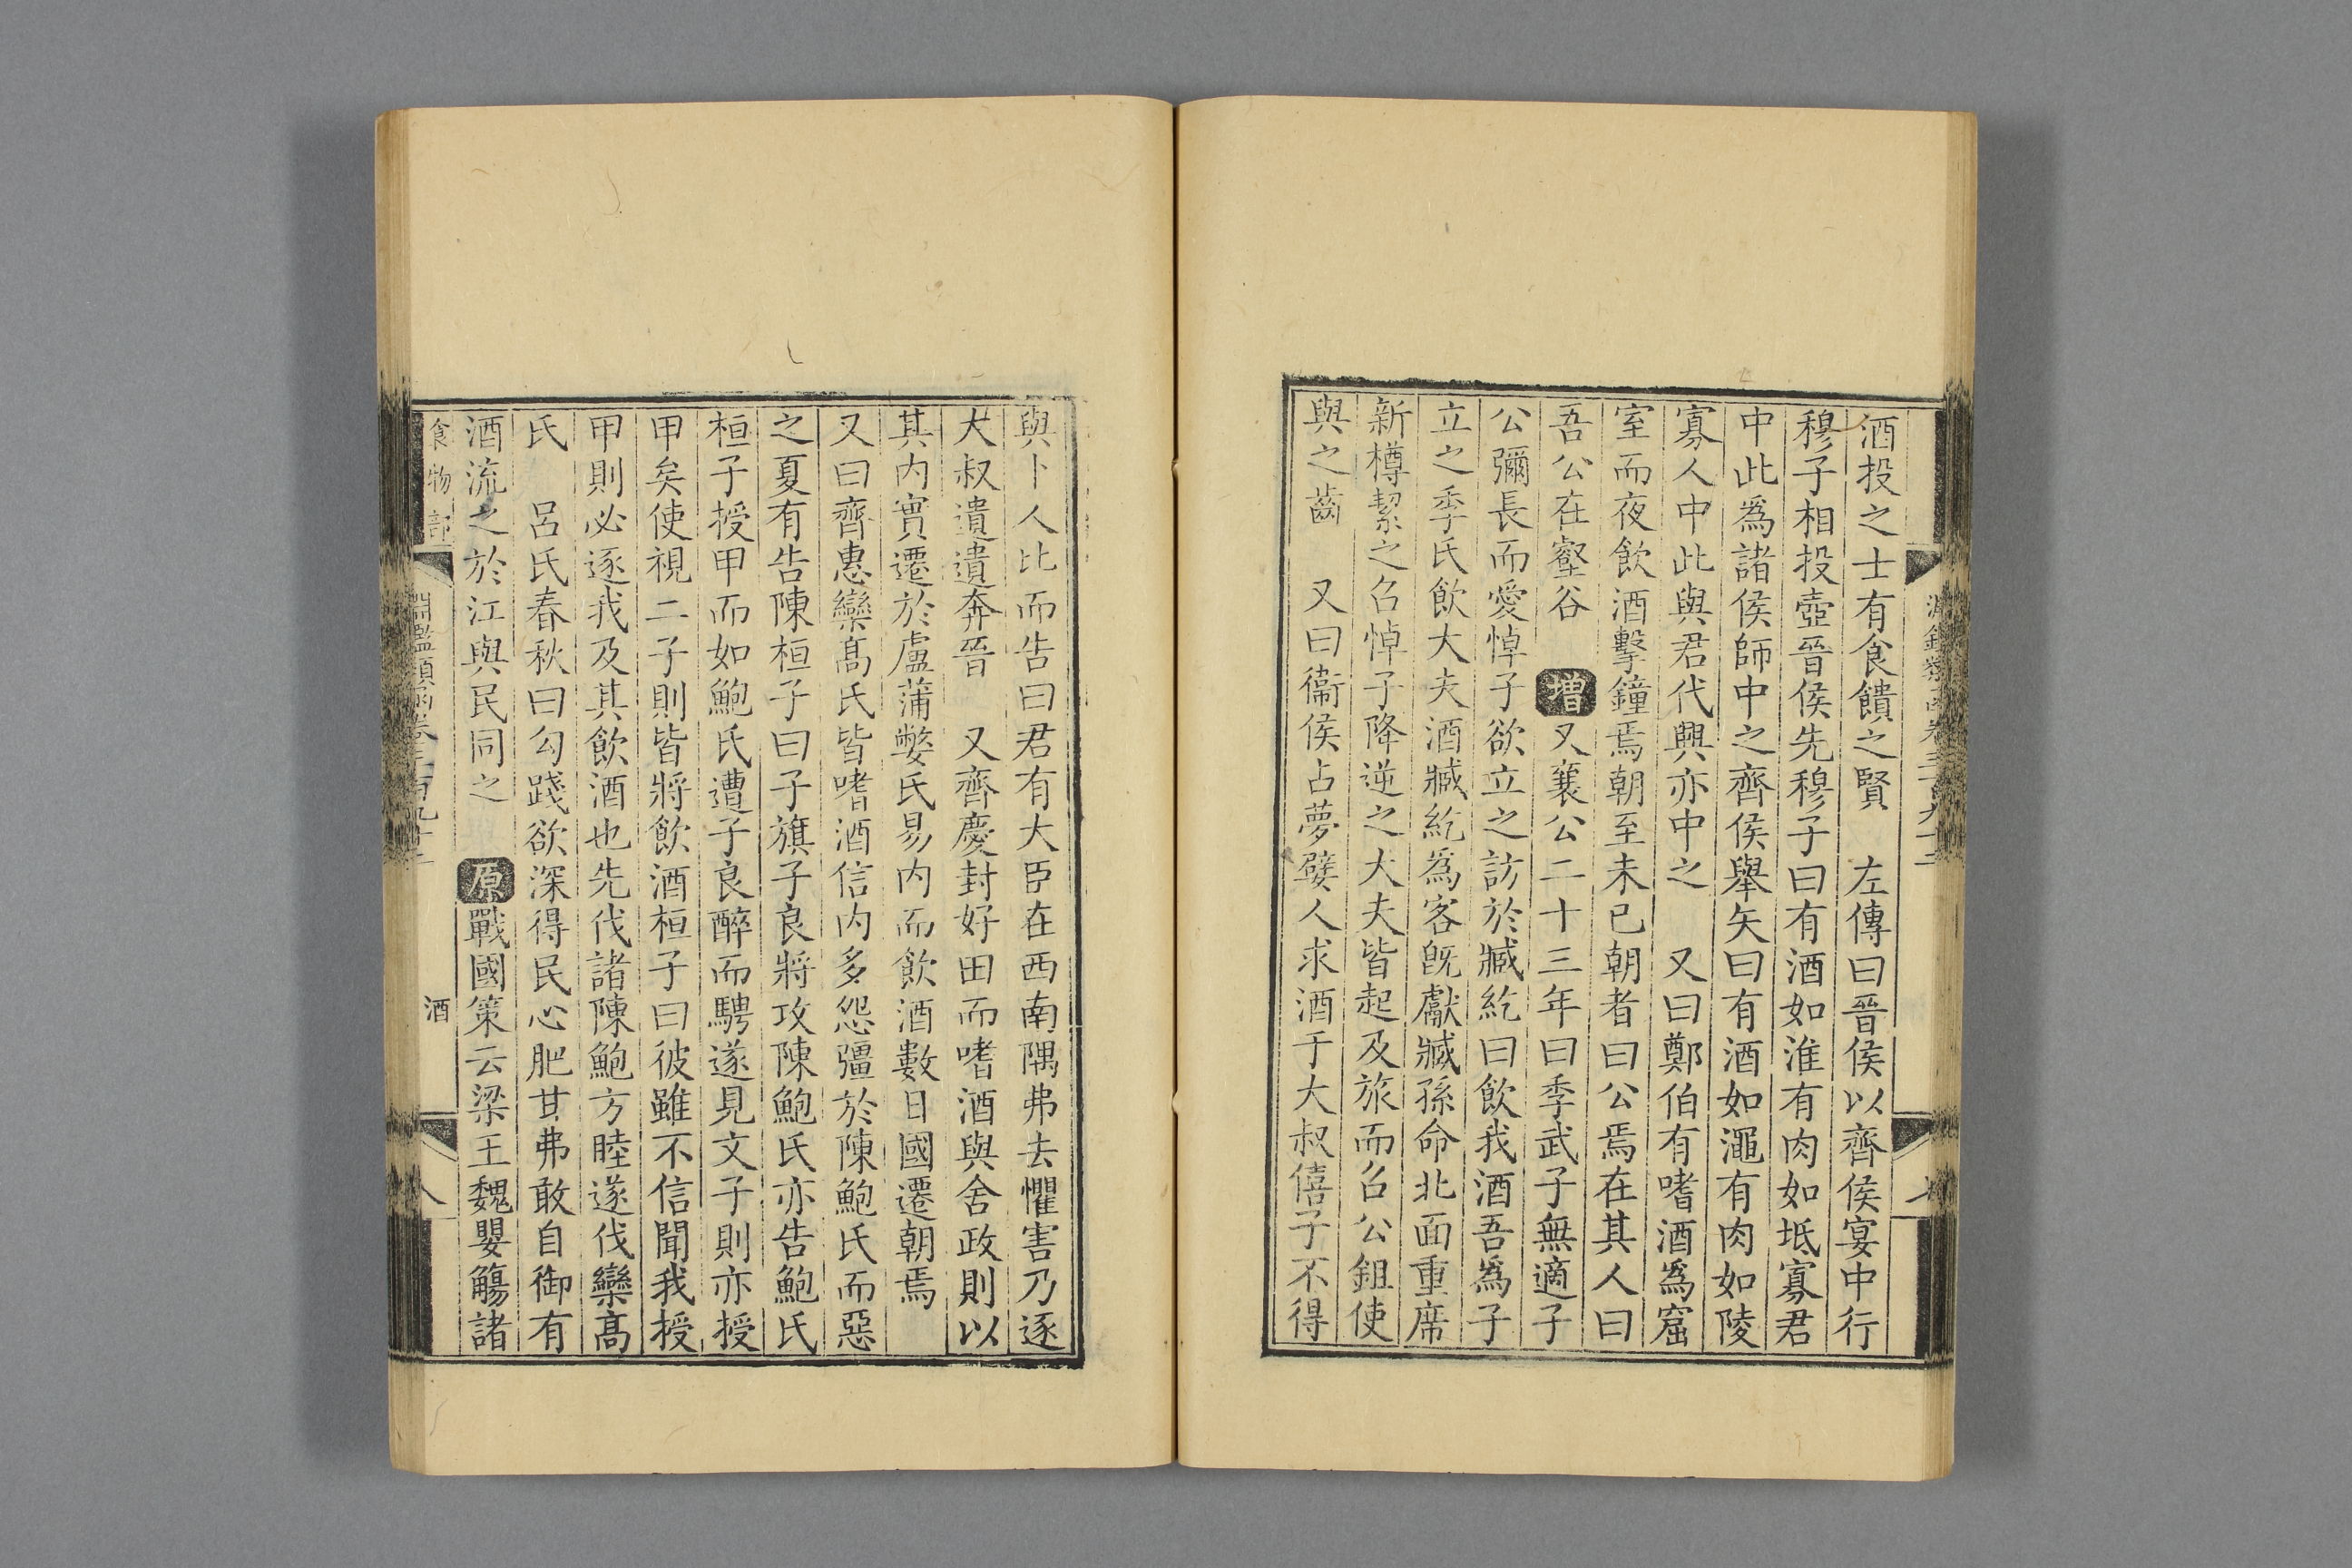 酒投之士有食饋之賢　左傳曰晉侯以齊侯宴中行
穆子相投壺晉侯先穆子曰有酒如淮有肉如坻寡君
中此爲諸侯師中之齊侯舉矢曰有酒如澠有肉如陵
寡人中此與君代興亦中之　又曰鄭伯有嗜酒爲窟
室而夜飲酒擊鐘焉朝至未已朝者曰公焉在其人曰
吾公在壑谷　增又襄公二十三年曰季武子無適子
公彌長而愛悼子欲立之訪於臧紇曰飲我酒吾爲子
立之季氏飲大夫酒臧紇爲客旣獻臧孫命北面重席
新樽絜之召悼子降逆之大夫皆起及旅而召公鉏使
與之齒　又曰衞侯占夢嬖人求酒于大叔僖子不得
與卜人比而告曰君有大臣在西南隅弗去懼害乃逐
大叔遺遺奔晉　又齊慶封好田而嗜酒與舍政則以
其内實遷於盧蒲嫳氏易内而飲酒數日國遷朝焉
又曰齊惠欒髙氏皆嗜酒信内多怨彊於陳鮑氏而惡
之夏有告陳桓子曰子旗子良將攻陳鮑氏亦告鮑氏
桓子授甲而如鮑氏遭子良醉而騁遂見文子則亦授
甲矣使視二子則皆將飲酒桓子曰彼雖不信聞我授
甲則必逐我及其飲酒也先伐諸陳鮑方睦遂伐欒髙
氏　呂氏春秋曰勾踐欲深得民心肥甘弗敢自御有
酒流之於江與民同之　原戰國策云梁王魏嬰觴諸
食物部
淵鑑類函卷三百九十二
酒
八